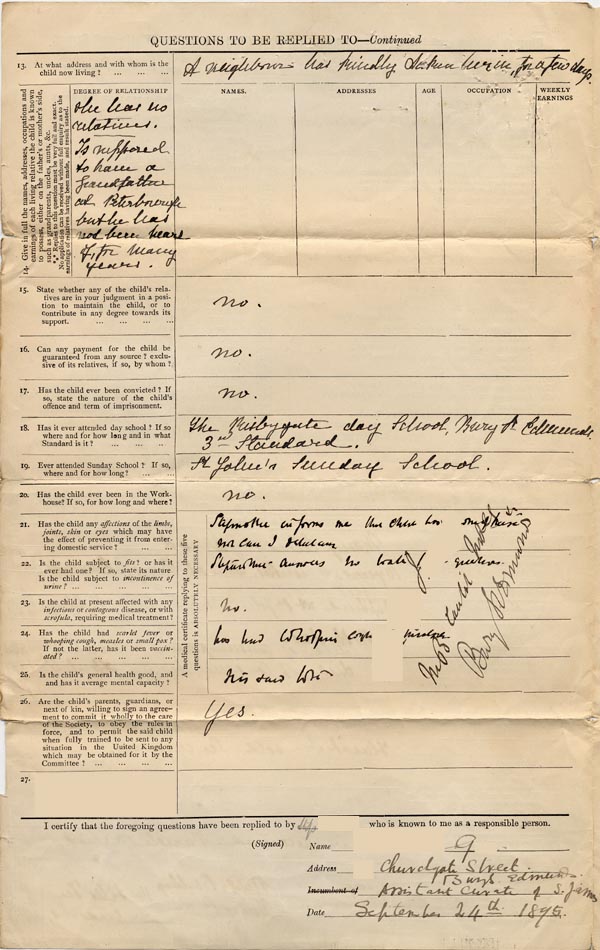 QUESTIONS TO BE REPLIED TO—Continued
13. At what address and with whom is the
child now living? ... ... ...
A neighbour has kindly taken her in for a few days.
14. Give in full the names, addresses, occupations and
earnings of each living relative the child is known
to possess, either on the father's or mother's side,
such as grandparents, uncles, aunts, &c.
*** Replies to this question must be very full and exact.
No application can be received without full enquiry as to the
earnings of relatives having been made, and result stated.
DEGREE OF RELATIONSHIP
NAMES.
ADDRESSES
AGE
OCCUPATION
WEEKLY
EARNINGS
She has no
relatives.
Is supposed
to have a
grandfather
at Peterborough
but he has
not been heard
of, for many
years.
15. State whether any of the child's rela-
tives are in your judgment in a posi-
tion to maintain the child, or to
contribute in any degree towards its
support. ... ... ... ...
no.
16. Can any payment for the child be
guaranteed from any source? exclu-
sive of its relatives, if so, by whom?
no.
17. Has the child ever been convicted? If
so, state the nature of the child's
offence and term of imprisonment.
no.
18. Has it ever attended day school? If so
where and for how long and in what
Standard is it? ... ... ...
The Risbygate day School, Bury St Edmunds.
3rd Standard.
19. Ever attended Sunday School? If so,
where and for how long? ... ...
St John's Sunday School.
20. Has the child ever been in the Work-
house? If so, for how long and where?
no.
A medical certificate replying to these five
questions is ABSOLUTELY NECESSARY
21. Has the child any affections of the limbs,
joints, skin or eyes which may have
the effect of preventing it from enter-
ing domestic service? ... ...
Stepmother informs me the child has
nor can I
22. Is the child subject to fits? or has it
ever had one? If so, state its nature
Is the child subject to incontinence of
urine? ... ... ... ...
Stepmother answers no to
23. Is the child at present affected with any
infectious or contagious disease, or with
scrofula, requiring medical treatment?
no.
24. Has the child had scarlet fever or
whooping cough, measles or small pox?
If not the latter, has it been vaccin-
ated? ... ... ... ...
has had Whooping cough
25. Is the child's general health good, and
and has it average mental capacity?
Bury St Edmunds
26. Are the child's parents, guardians, or
next of kin, willing to sign an agree-
ment to commit it wholly to the care
of the Society, to obey the rules in
force, and to permit the said child
when fully trained to be sent to any
situation in the United Kingdom
which may be obtained for it by the
Committee? ... ... ... ...
Yes.
27.
I certify that the foregoing questions have been replied to by who is known to me as a responsible person.
(Signed)
Name G
Address Churchgate Street
Bury St Edmunds
Incumbent of Assistant Curate of S. James
Date September 24th 1895.